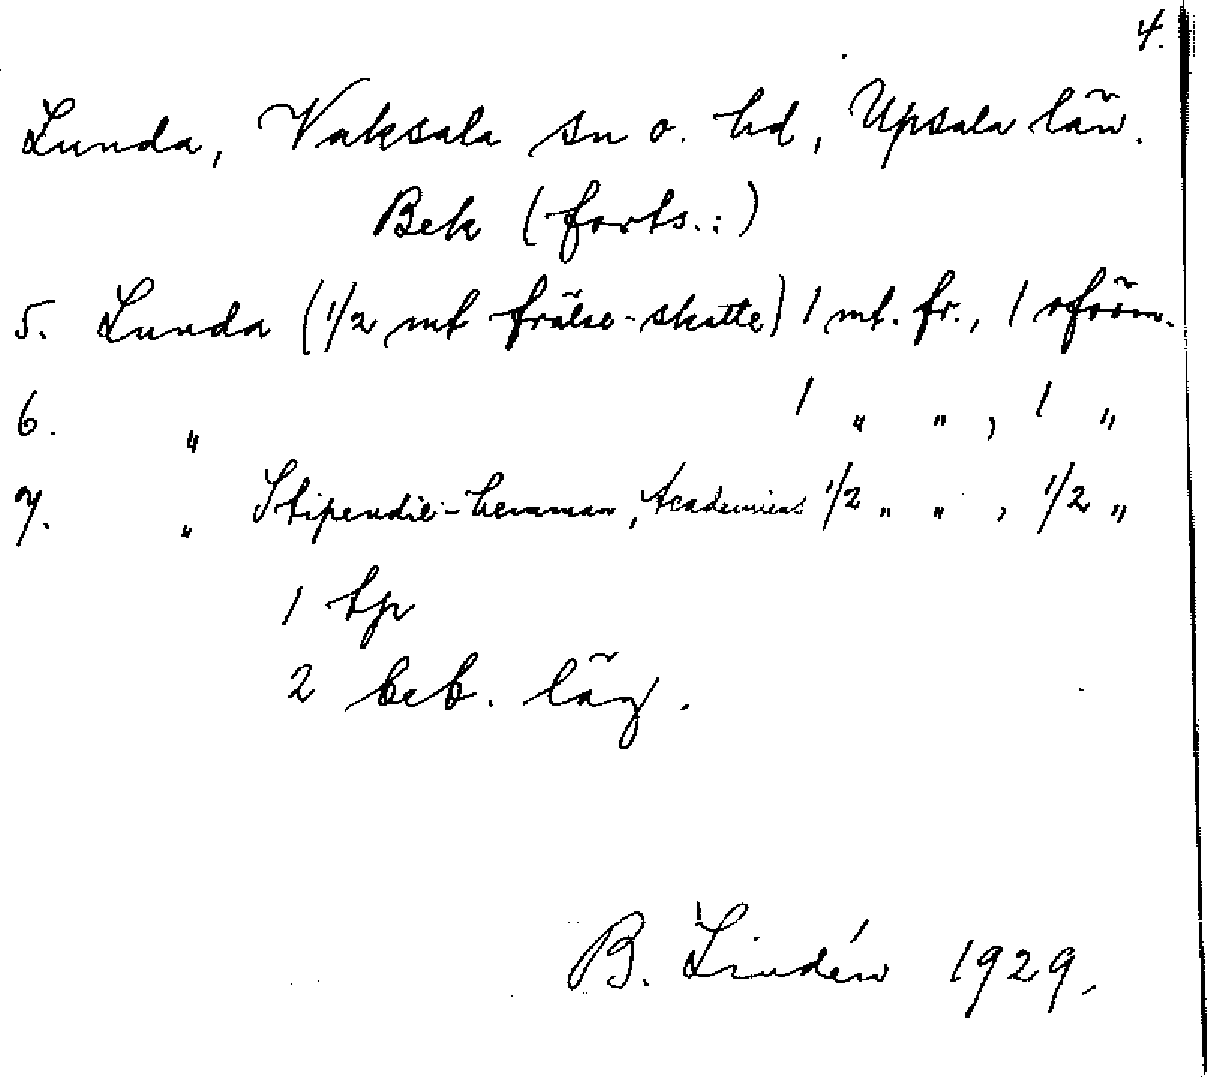 4.
Lunda, Vaksala sn o. hd, Upsala län.
Bek (forts.:)
5. Lunda (1/2 mt frälse-skatte) 1 mt. fr., 1 oförm.
6. " 1 " " , 1 "
7. " Stipendie-hemman, Academiens 1/2 " " , 1/2 "
1 tp
2 beb. läg.
B. Lindén 1929.